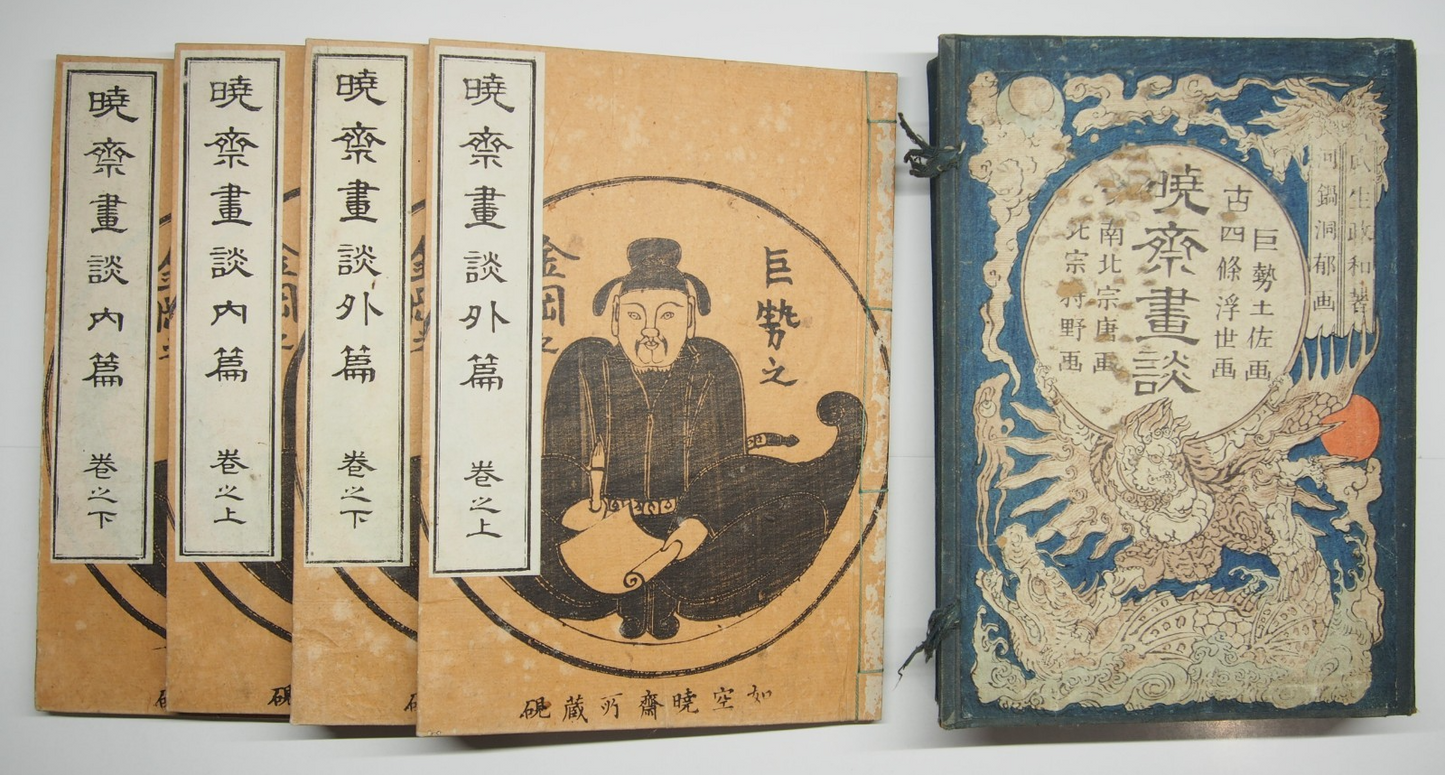 暁斎畫談内篇 巻之下
暁斎畫談内篇 巻之上
暁斎畫談外篇 巻之下
暁斎畫談外篇 巻之上
巨勢之
金岡之
如空暁齋所蔵硯
瓜生政和著
河鍋洞郁画
巨勢土佐画
古四條浮世画
暁斎畫談
南北宗唐画
北宗狩野画